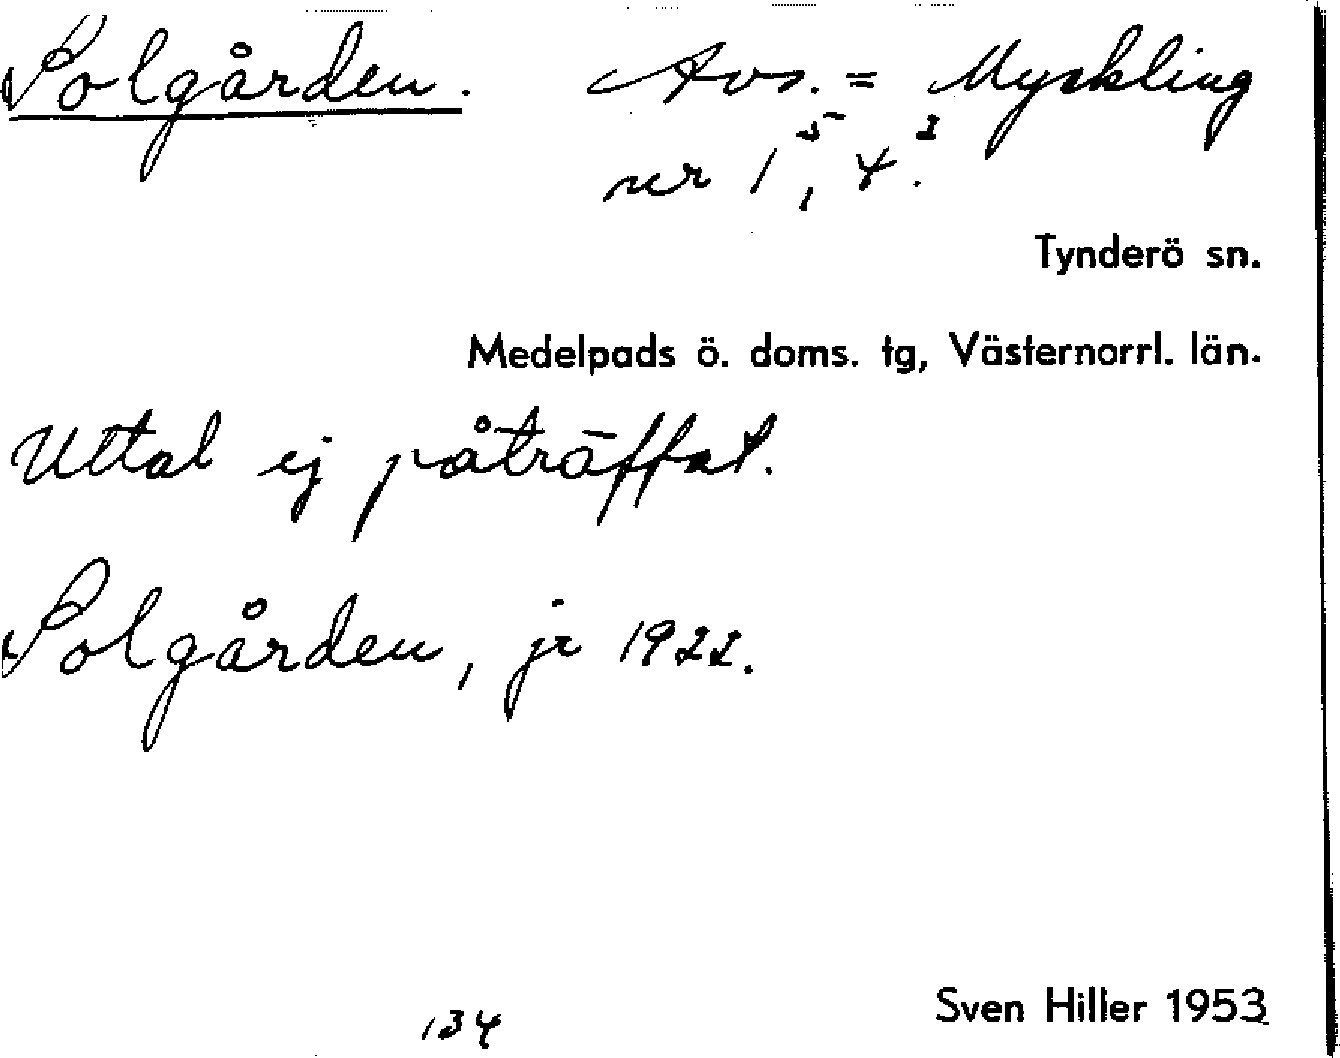 Solgården. Avs. = Myckling
nr 1⁵, 4³.
Tynderö sn.
Medelpads ö. doms. tg, Västernorrl. län.
Uttal ej påträffat.
Solgården, jr 1922.
134
Sven Hiller 1953